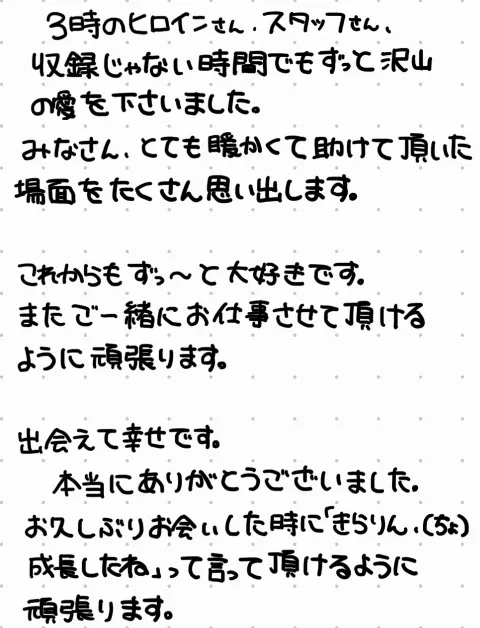 3時のヒロインさん、スタッフさん、
収録じゃない時間でもずっと沢山
の愛を下さいました。
みなさん、とても暖かくて助けて頂いた
場面をたくさん思い出します。
これからもずっ〜と大好きです。
またご一緒にお仕事させて頂ける
ように頑張ります。
出会えて幸せです。
本当にありがとうございました。
お久しぶりお会いした時に「きらりん、(ちょ)
成長したね」って言って頂けるように
頑張ります。